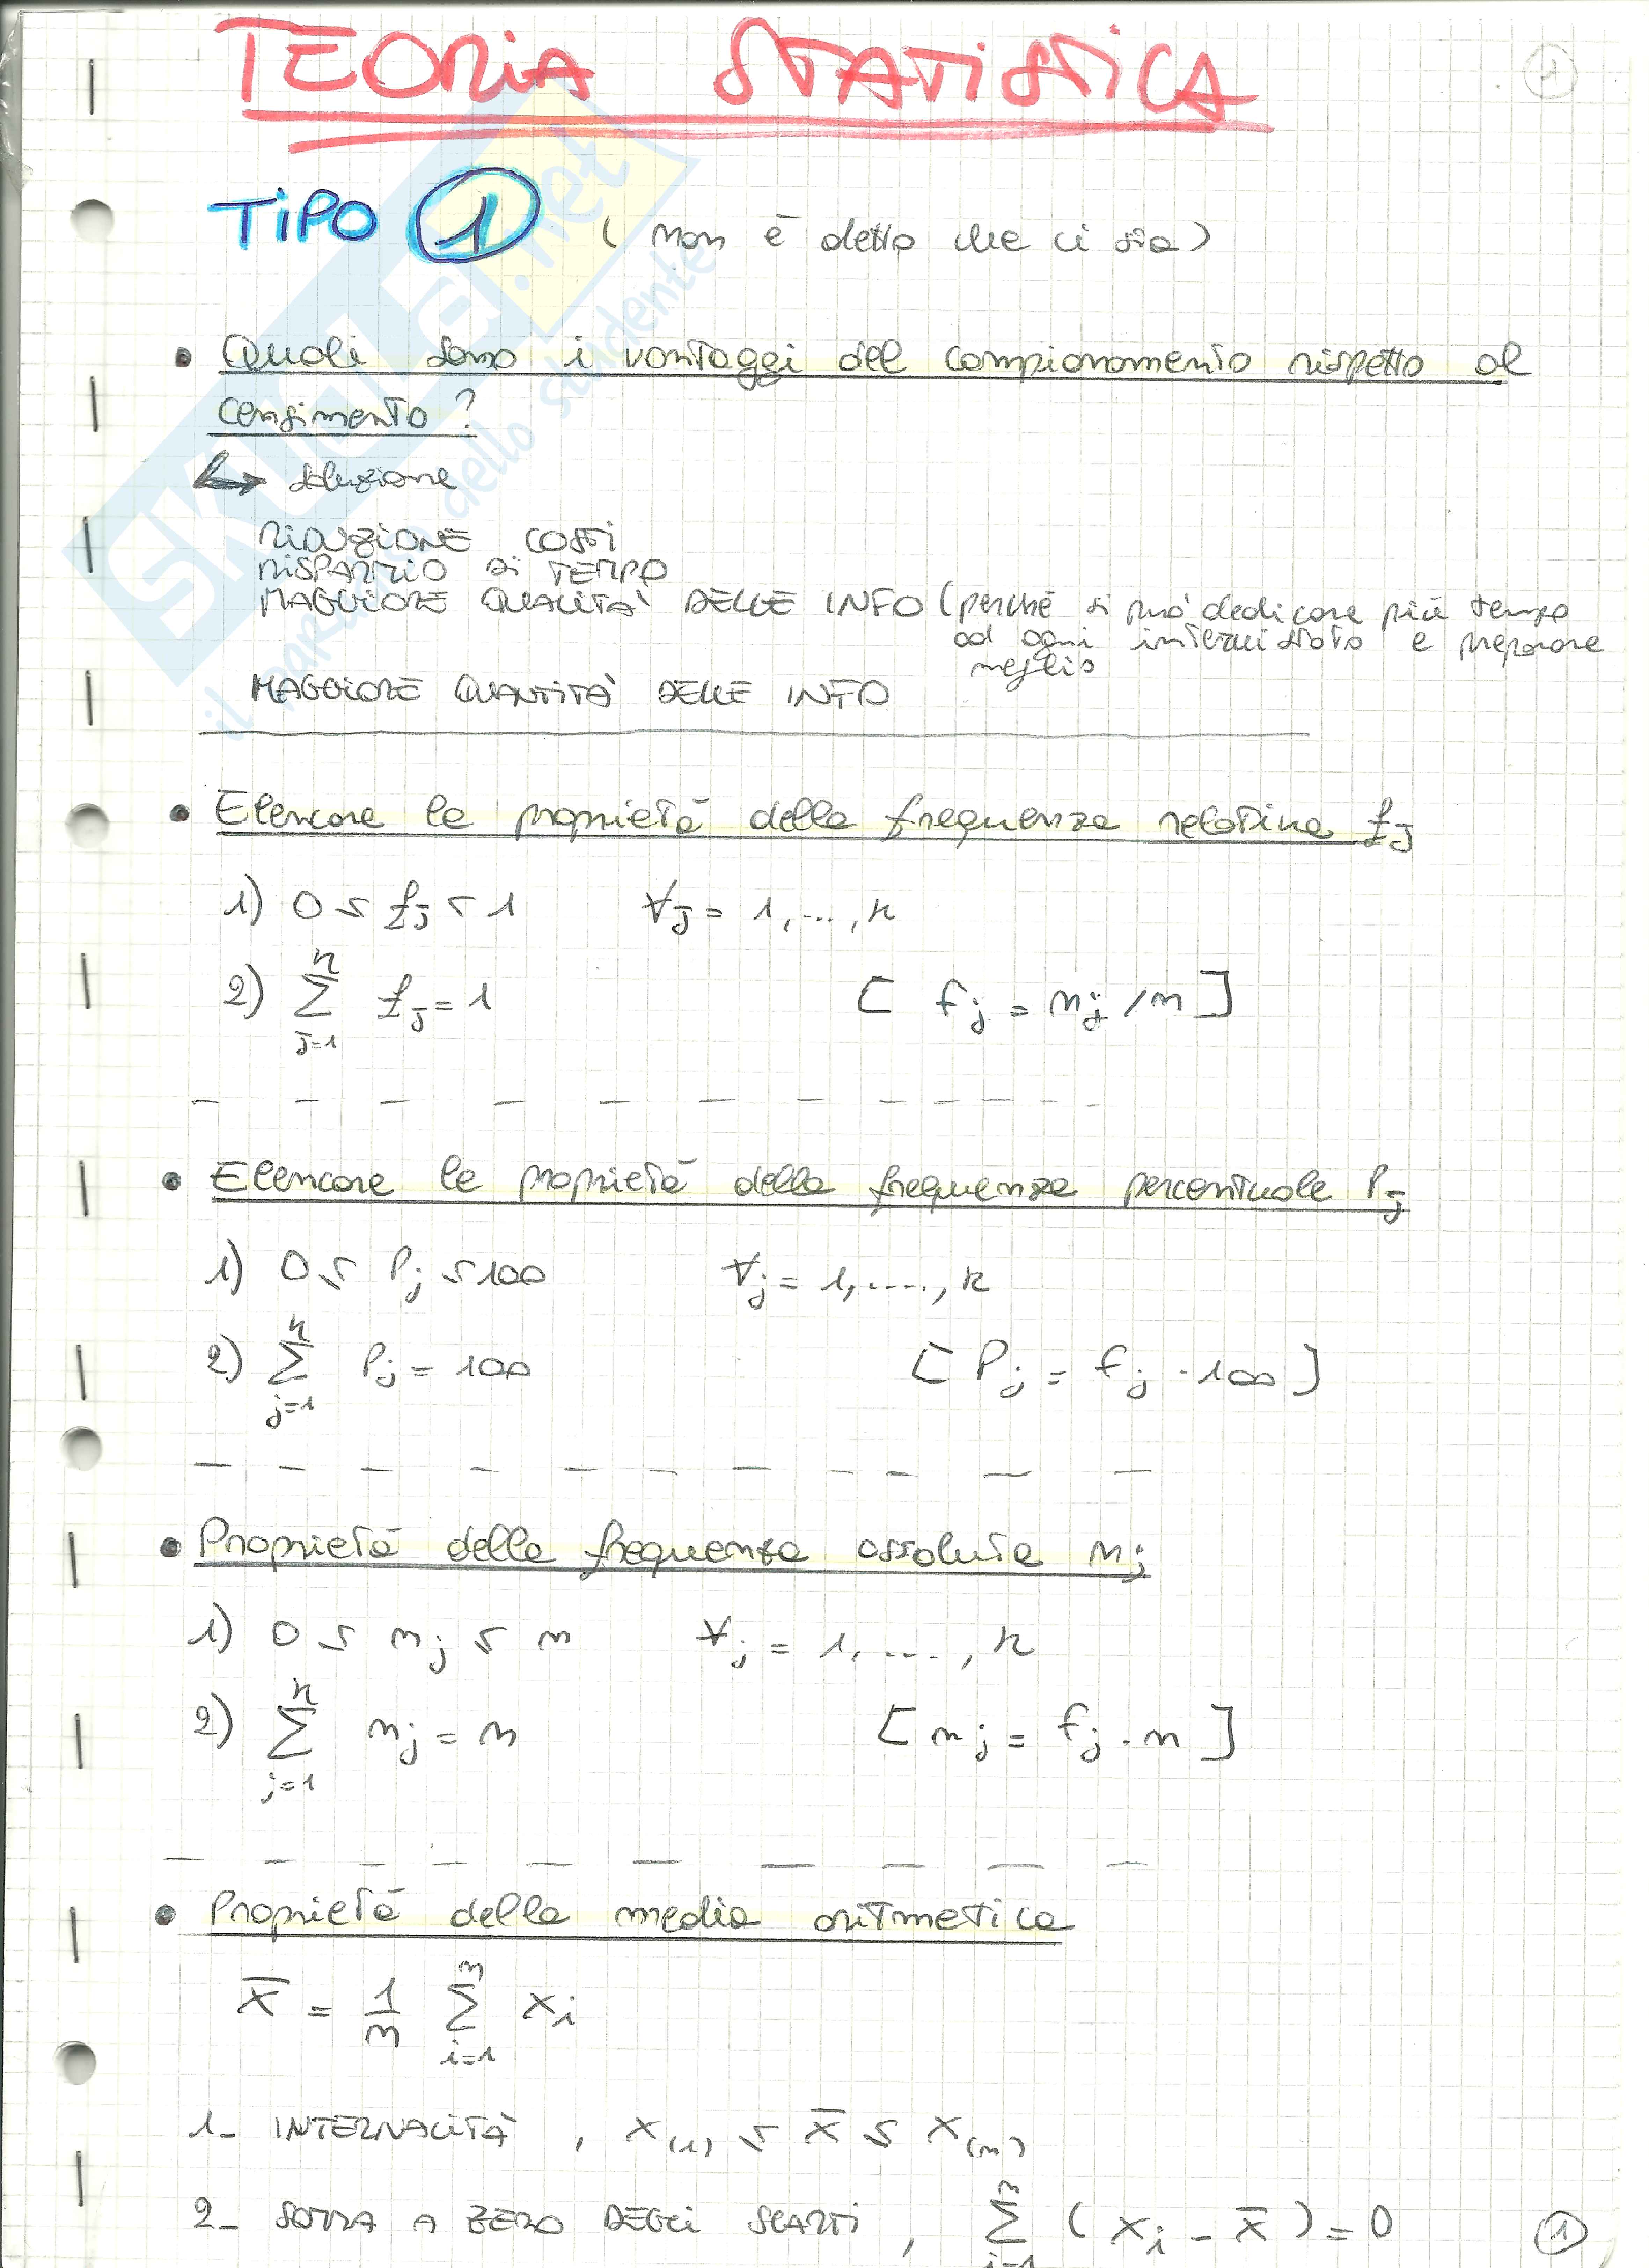 TEORIA STATISTICA
TIPO 1 (non è detto che ci sia)
• Quali sono i vantaggi del campionamento rispetto al
censimento?
↳ soluzione
RIDUZIONE COSTI
RISPARMIO DI TEMPO
MAGGIORE QUALITÀ DELLE INFO (perché si può dedicare più tempo
ad ogni intervistato e preparare
meglio
MAGGIORE QUANTITÀ DELLE INFO
• Elencare le proprietà della frequenza relativa fj
1) 0 ≤ fj ≤ 1 ∀j = 1, ..., k
2) ∑ j=1 k fj = 1 [ fj = nj / n ]
• Elencare le proprietà della frequenza percentuale Pj
1) 0 ≤ Pj ≤ 100 ∀j = 1, ...., k
2) ∑ j=1 k Pj = 100 [ Pj = fj · 100 ]
• Proprietà della frequenza assoluta nj
1) 0 ≤ nj ≤ n ∀j = 1, ...., k
2) ∑ j=1 k nj = n [ nj = fj · n ]
• Proprietà della media aritmetica
x̄ = 1/n ∑ i=1 n xi
1- INTERNALITÀ , x(1) ≤ x̄ ≤ x(n)
2- SOMMA A ZERO DEGLI SCARTI , ∑ i=1 n ( xi - x̄ ) = 0
1
SKUOLA.net
il portale dello studente